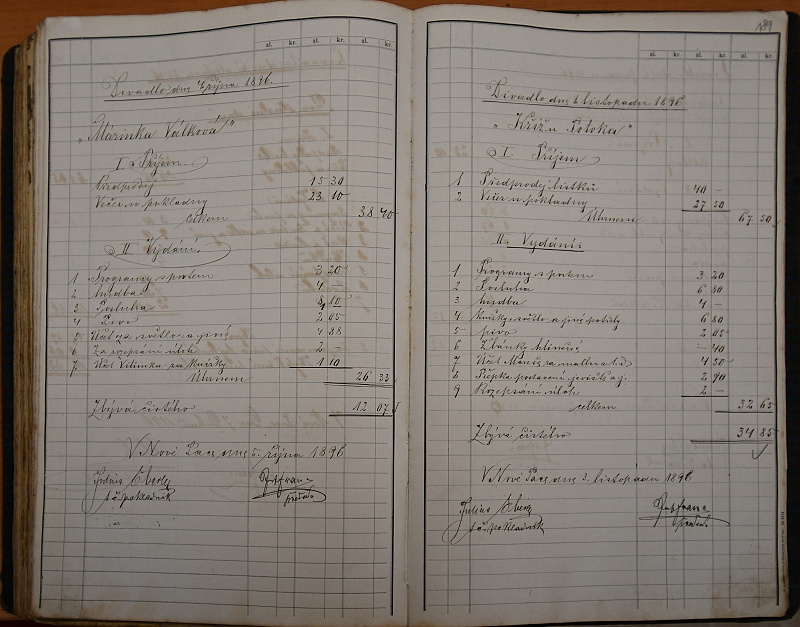 zl. kr. zl. kr. zl. kr.
Divadlo dne října 1896.
„Mařinka Válková"
I. Příjem.
Předprodej 15 30
Večer u pokladny 23 10
celkem 38 40
II. Vydání.
1 Programy s portem 3 20
2 hudba 4 —
3 Posluha 8 10
4 Pivo 2 05
5 Účet za světlo a jiné 4 88
6 Za rozepsání úloh 2 —
7 Účet Vilímka za knížky 1 10
Úhrnem 26 33
Zbývá čistého 12 07
V Nové Pace, dne 5. října 1896
Julius
t. č. pokladník
předseda
189
zl. kr. zl. kr. zl. kr.
Divadlo dne 1 listopadu 1896
„Kříž u Potoka"
I. Příjem
1 Předprodej lístků 40 —
2 Večer u pokladny 27 50
Úhrnem 67 50
II. Vydání:
1 Programy s portem 3 20
2 Posluha 6 80
3 hudba 4 —
4 světlo a jiné 6 80
5 pivo 2 05
6 Zbánky hliněné — 40
7 Účet 4 50
8 postavení jeviště a j. 2 90
9 Rozepsání úloh 2 —
celkem 32 65
Zbývá čistého 34 85
V Nové Pace, dne 3. listopadu 1896
Julius
t. č. pokladník
předseda